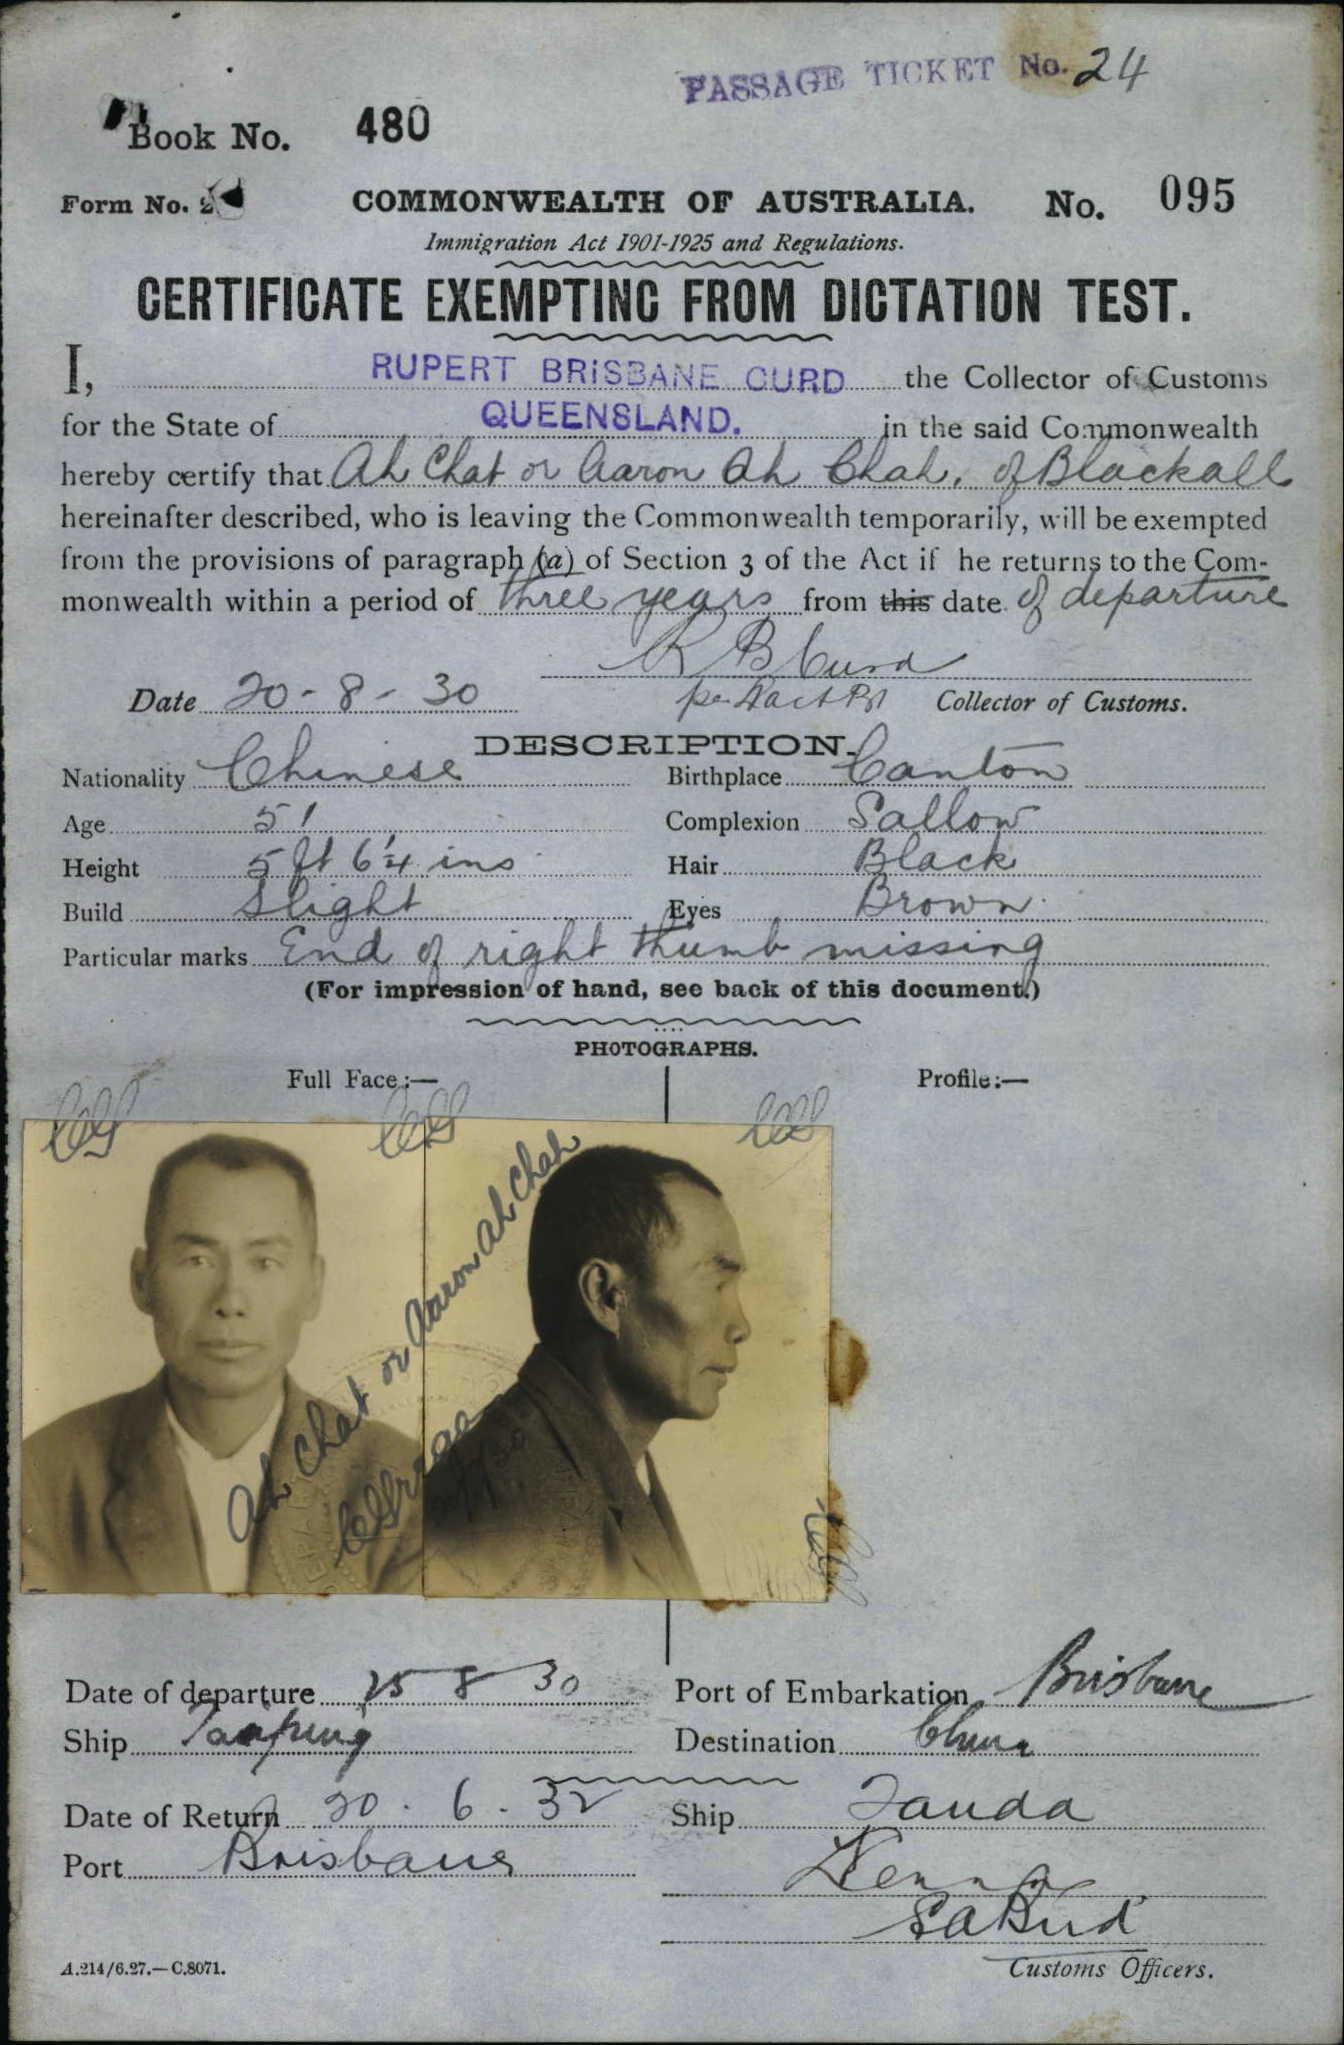 PASSAGE TICKET No. 24
Book No. 480
Form No. 2
COMMONWEALTH OF AUSTRALIA. No. 095
Immigration Act 1901-1925 and Regulations.
CERTIFICATE EXEMPTING FROM DICTATION TEST.
I, RUPERT BRISBANE CURD the Collector of Customs
for the State of QUEENSLAND. in the said Commonwealth
hereby certify that Ah Chat or Aaron Ah Chah, of Blackall
hereinafter described, who is leaving the Commonwealth temporarily, will be exempted
from the provisions of paragraph (a) of Section 3 of the Act if he returns to the Com-
monwealth within a period of three years from this date of departure
R B Curd
Date 20-8-30 Collector of Customs.
DESCRIPTION.
Nationality Chinese Birthplace Canton
Age 51 Complexion Sallow
Height 5 ft 6 1/4 ins Hair Black
Build Slight Eyes Brown
Particular marks End of right thumb missing
(For impression of hand, see back of this document.)
PHOTOGRAPHS.
Full Face:— Profile:—
Ah Chat or Aaron Ah Chah
Date of departure 25 8 30 Port of Embarkation Brisbane
Ship Taiping Destination China
Date of Return 20.6.32 Ship Tanda
Port Brisbane
Kenna
SABird
Customs Officers.
A.214/6.27.—C.8071.